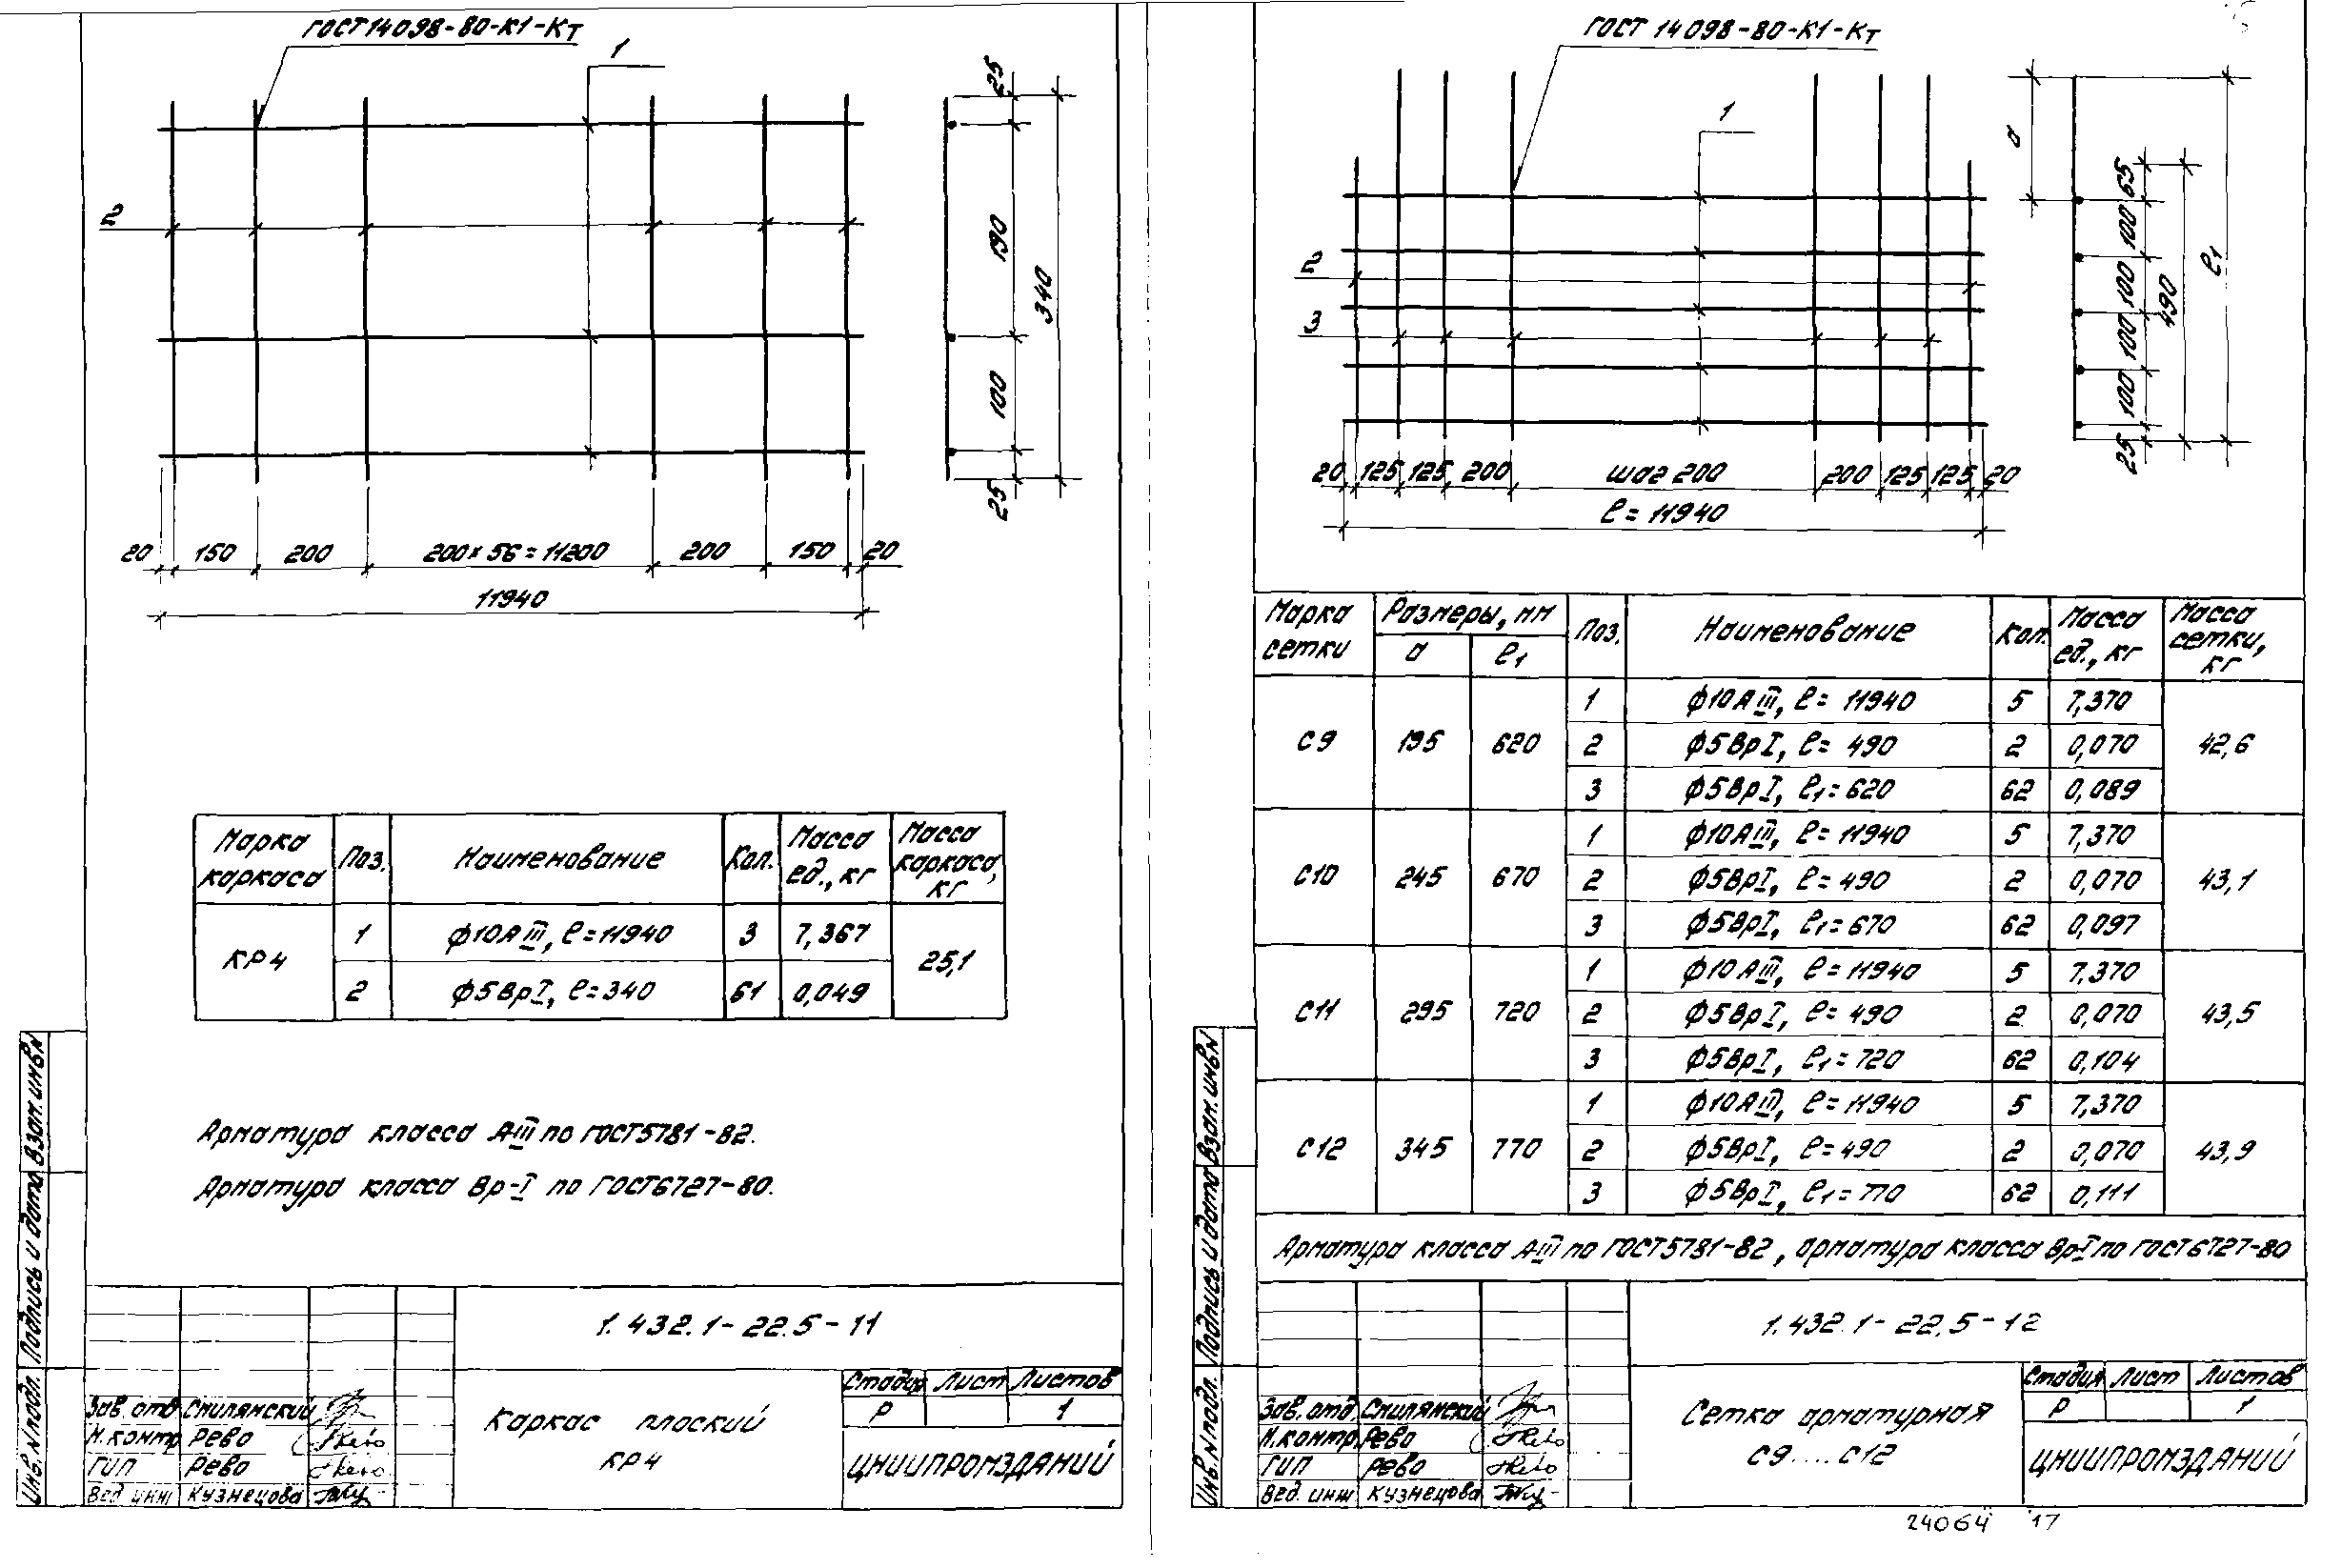 ГОСТ 14098-80-К1-Кт
1
2
25
190
340
100
25
20 150 200 200×56=11200 200 150 20
11940
Марка каркаса Поз. Наименование Кол. Масса ед., кг Масса каркаса, кг
КР4
1 ϕ10АIII, ℓ=11940 3 7,367
25,1
2 ϕ5ВрI, ℓ=340 61 0,049
Арматура класса А-III по ГОСТ 5781-82.
Арматура класса Вр-I по ГОСТ 6727-80.
Взам. инв. N
Подпись и дата
Инв. N подл.
1.432.1-22.5-11
Зав. отд. Смилянский
Н.контр. Рево
ГИП Рево
Вед. инж Кузнецова
Каркас плоский
КР4
Стадия Лист Листов
Р 1
ЦНИИПРОМЗДАНИЙ
ГОСТ 14098-80-К1-Кт
1
2
3
а
65
100
100
100
100
25
490
ℓ1
20 125 125 200 шаг 200 200 125 125 20
ℓ=11940
Марка сетки Размеры, мм Поз. Наименование Кол. Масса ед., кг Масса сетки, кг
а ℓ1
1 ϕ10АIII, ℓ=11940 5 7,370
С9 195 620 2 ϕ5ВрI, ℓ=490 2 0,070 42,6
3 ϕ5ВрI, ℓ1=620 62 0,089
1 ϕ10АIII, ℓ=11940 5 7,370
С10 245 670 2 ϕ5ВрI, ℓ=490 2 0,070 43,1
3 ϕ5ВрI, ℓ1=670 62 0,097
1 ϕ10АIII, ℓ=11940 5 7,370
С11 295 720 2 ϕ5ВрI, ℓ=490 2 0,070 43,5
3 ϕ5ВрI, ℓ1=720 62 0,104
1 ϕ10АIII, ℓ=11940 5 7,370
С12 345 770 2 ϕ5ВрI, ℓ=490 2 0,070 43,9
3 ϕ5ВрI, ℓ1=770 62 0,111
Арматура класса А-III по ГОСТ 5781-82, арматура класса Вр-I по ГОСТ 6727-80
Взам. инв. N
Подпись и дата
Инв. N подл.
1.432.1-22.5-12
Зав. отд. Смилянский
Н.контр. Рево
ГИП Рево
Вед. инж Кузнецова
Сетка арматурная
С9....С12
Стадия Лист Листов
Р 1
ЦНИИПРОМЗДАНИЙ
24064 17